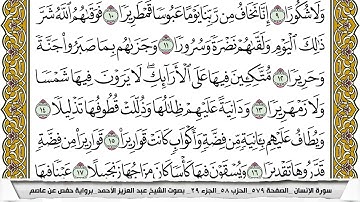 وَلَا شُكُورًا ٩ إِنَّا نَخَافُ مِن رَّبِّنَا يَوْمًا عَبُوسًا قَمْطَرِيرًا ١٠ فَوَقَىٰهُمُ ٱللَّهُ شَرَّ
ذَٰلِكَ ٱلْيَوْمِ وَلَقَّىٰهُمْ نَضْرَةً وَسُرُورًا ١١ وَجَزَىٰهُم بِمَا صَبَرُوا۟ جَنَّةً
وَحَرِيرًا ١٢ مُّتَّكِـِٔينَ فِيهَا عَلَى ٱلْأَرَآئِكِ ۖ لَا يَرَوْنَ فِيهَا شَمْسًا
وَلَا زَمْهَرِيرًا ١٣ وَدَانِيَةً عَلَيْهِمْ ظِلَٰلُهَا وَذُلِّلَتْ قُطُوفُهَا تَذْلِيلًا ١٤
وَيُطَافُ عَلَيْهِم بِـَٔانِيَةٍ مِّن فِضَّةٍ وَأَكْوَابٍ كَانَتْ قَوَارِيرَا۠ ١٥ قَوَارِيرَا۟ مِن فِضَّةٍ
قَدَّرُوهَا تَقْدِيرًا ١٦ وَيُسْقَوْنَ فِيهَا كَأْسًا كَانَ مِزَاجُهَا زَنجَبِيلًا ١٧ عَيْنًا فِيهَا
سورة الإنسان _ الصفحة ٥٧٩ _ الحزب ٥٨ _ الجزء ٢٩ _ بصوت الشيخ عبد العزيز الأحمد _ برواية حفص عن عاصم